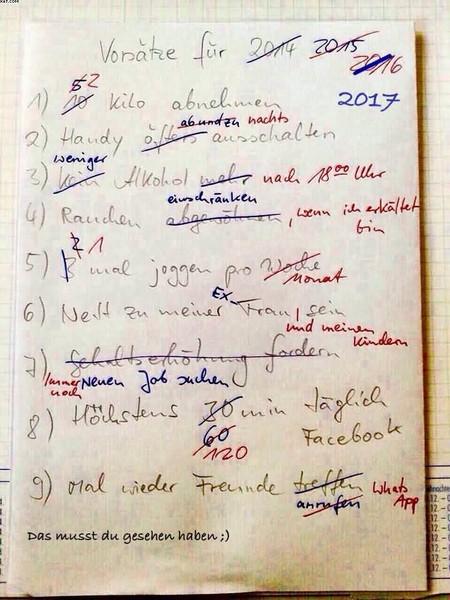 Vorsätze für 2014 2015 2016
2017
1) 10 5 2 Kilo abnehmen
2) Handy öfters ab und zu nachts ausschalten
3) Kein weniger Alkohol mehr nach 18⁰⁰ Uhr
4) Rauchen abgewöhnen einschränken, wenn ich erkältet bin
5) 3 2 1 mal joggen pro Woche Monat
6) Nett zu meiner Ex-Frau sein und meinen Kindern
7) Gehaltserhöhung fordern
Immer noch Neuen Job suchen
8) Höchstens 30 min täglich
60 Facebook
120
9) Mal wieder Freunde treffen WhatsApp
anrufen
Das musst du gesehen haben ;)